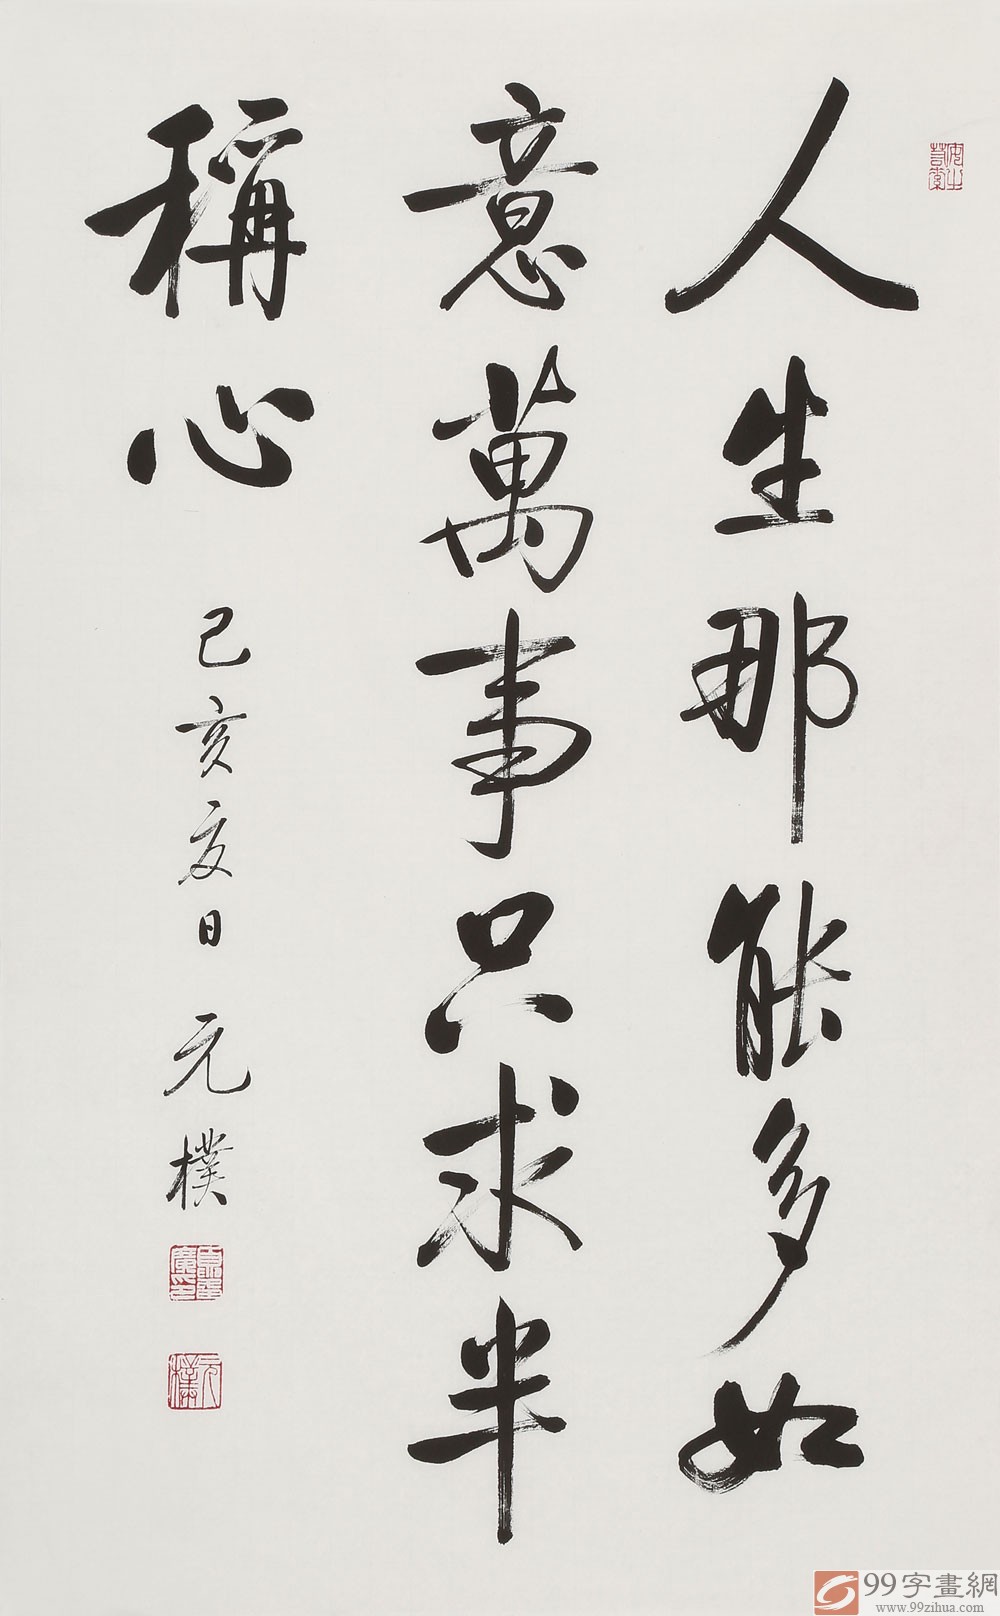 人生那能多如
意萬事只求半
稱心
己亥夏日 元樸
元樸
99字畫網
www.99zihua.com